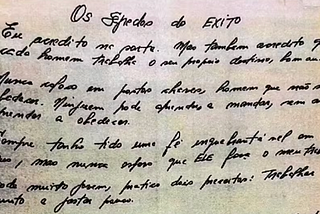 Os Segredos do EXITO
Eu acredito na sorte. Mas também acredito q
cada homem trabalha o seu proprio destino, bom ou
Nunca espere em outro chever homem que não s
obedecer. Ninguem pode aprender a mandar, sem a
aprender a obedecer.
Sempre tenho tido uma fé inquebrantável em
mas nunca espero que ELE faça o meu tra
muito jovem, pratico dois preceitos: Trabalhar
muito e gastar pouco.